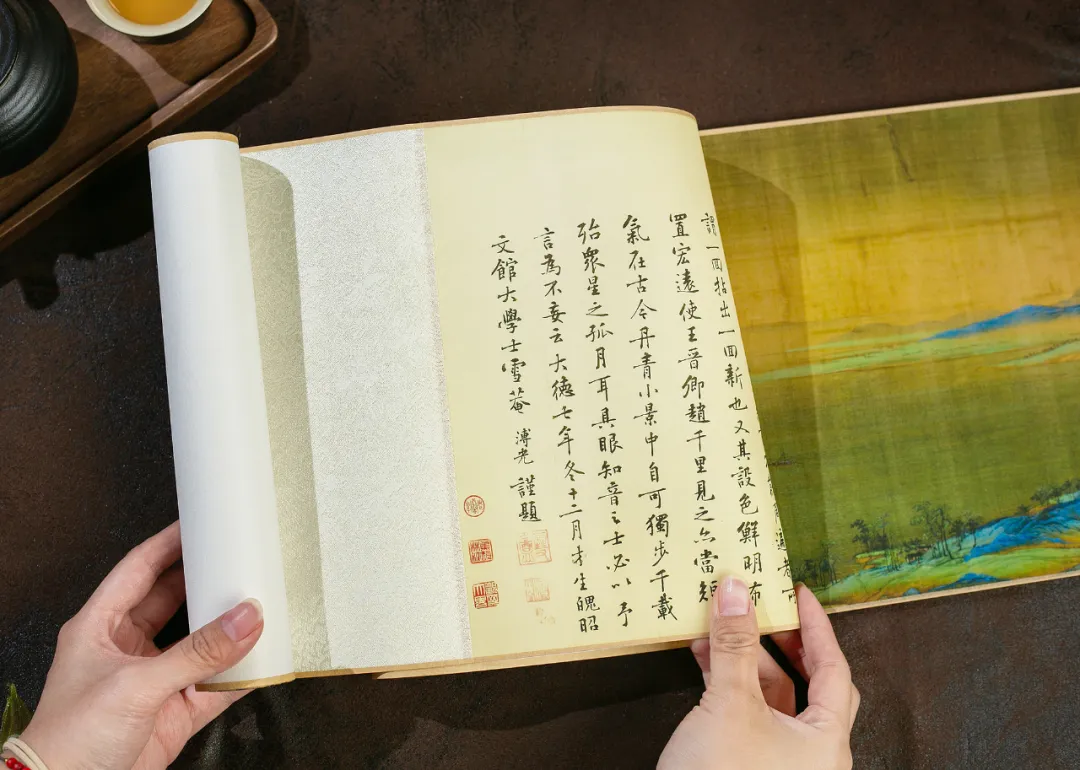 謂一囬拈出一囬新也又其設色鮮明布
置宏遠使王晉卿趙千里見之亦當短
氣在古今丹青小景中自可獨步千載
殆衆星之孤月耳具眼知音之士必以予
言為不妄云大德七年冬十二月才生魄昭
文館大學士雪菴溥光謹題